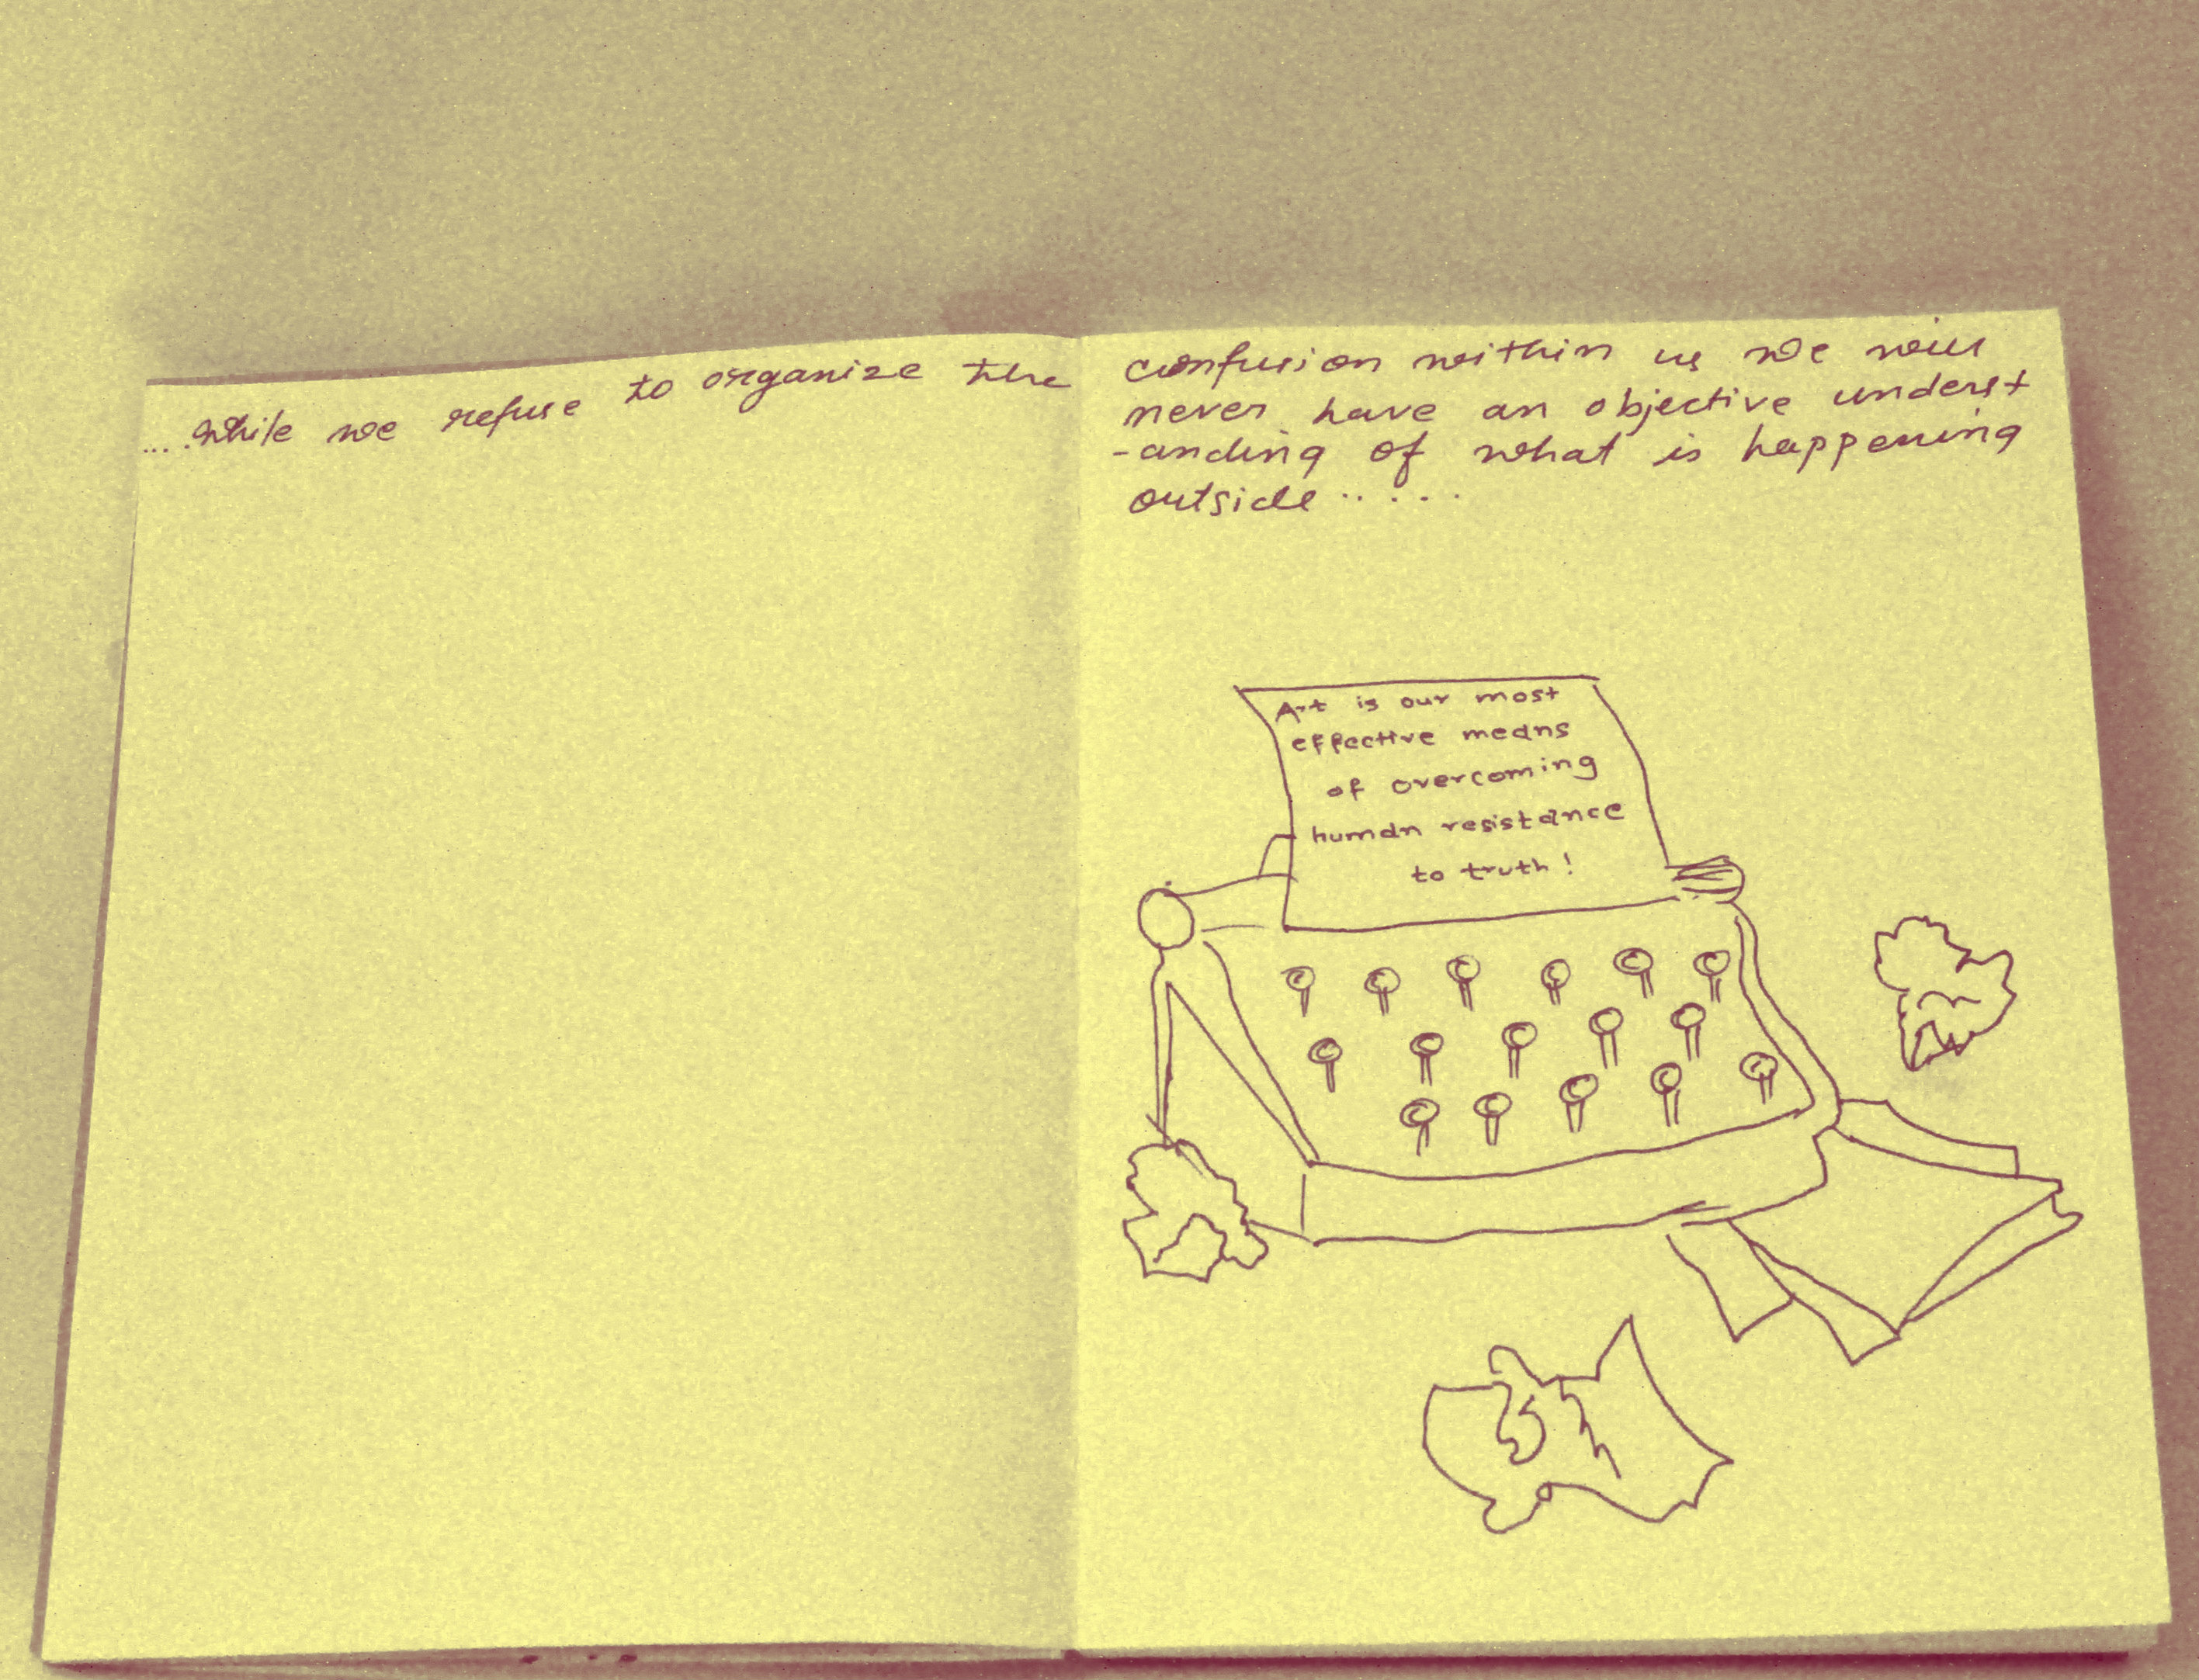 ....while we refuse to organize the
confusion within us we will
never have an objective underst
-anding of what is happening
outside .....
Art is our most
effective means
of overcoming
human resistance
to truth!